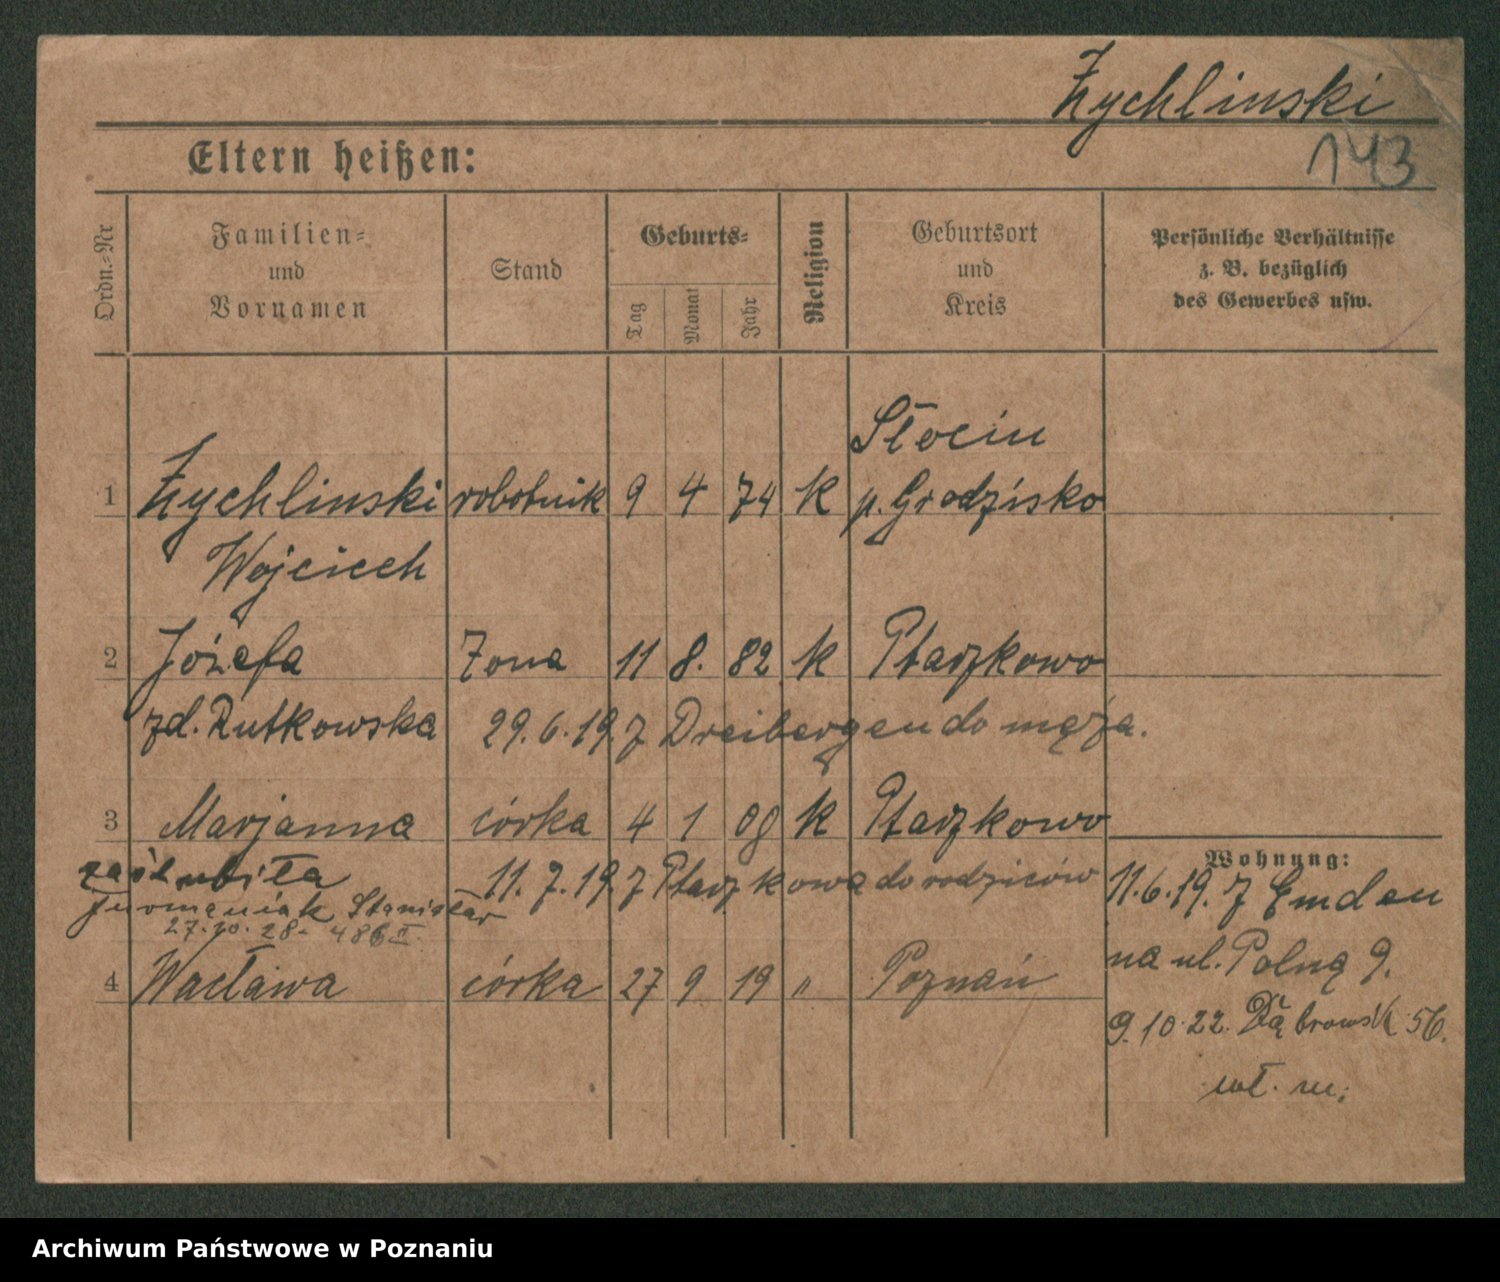 Żychlinski
143
Eltern heißen:
Ordn.=Nr
Familien=
und
Vornamen
Stand
Geburts=
Tag
Monat
Jahr
Religion
Geburtsort
und
Kreis
Persönliche Verhältnisse
z. B. bezüglich
des Gewerbes usw.
Słocin
1 Żychlinski robotnik 9 4 74 k p. Grodzisko
Wojciech
2 Józefa Zona 11 8. 82 k Ptaszkowo
zd. Rutkowska 29.6.19. z Dreibergen do męża.
3 Marjanna córka 4 1 09 k Ptaszkowo
zaślubiła 11.7.19 z Ptaszkowa do rodziców
Furmaniak Stanisław
27.10.28 - 486 II.
4 Wacława córka 27 9 19 " Poznań
Wohnung:
11.6.19. z Emden
na ul. Polną 9.
9.10.22. Dąbrowsk 56.
wł. m;
Archiwum Państwowe w Poznaniu